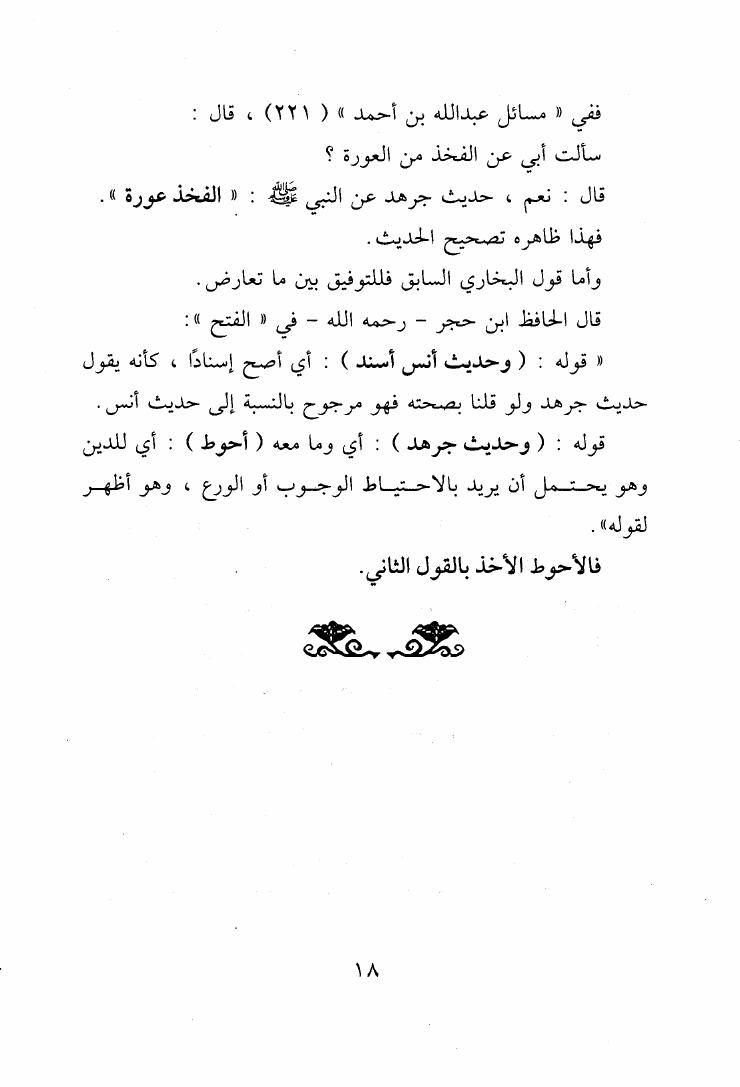 ففي « مسائل عبدالله بن أحمد » ( ٢٢١ ) ، قال :
سألت أبي عن الفخذ من العورة ؟
قال : نعم ، حديث جرهد عن النبي ﷺ : « الفخذ عورة ».
فهذا ظاهره تصحيح الحديث.
وأما قول البخاري السابق فللتوفيق بين ما تعارض.
قال الحافظ ابن حجر – رحمه الله – في « الفتح »:
« قوله : ( وحديث أنس أسند ) : أي أصح إسنادًا ، كأنه يقول
حديث جرهد ولو قلنا بصحته فهو مرجوح بالنسبة إلى حديث أنس.
قوله : ( وحديث جرهد ) : أي وما معه ( أحوط ) : أي للدين
وهو يحتمل أن يريد بالاحتياط الوجوب أو الورع ، وهو أظهر
لقوله».
فالأحوط الأخذ بالقول الثاني.
١٨